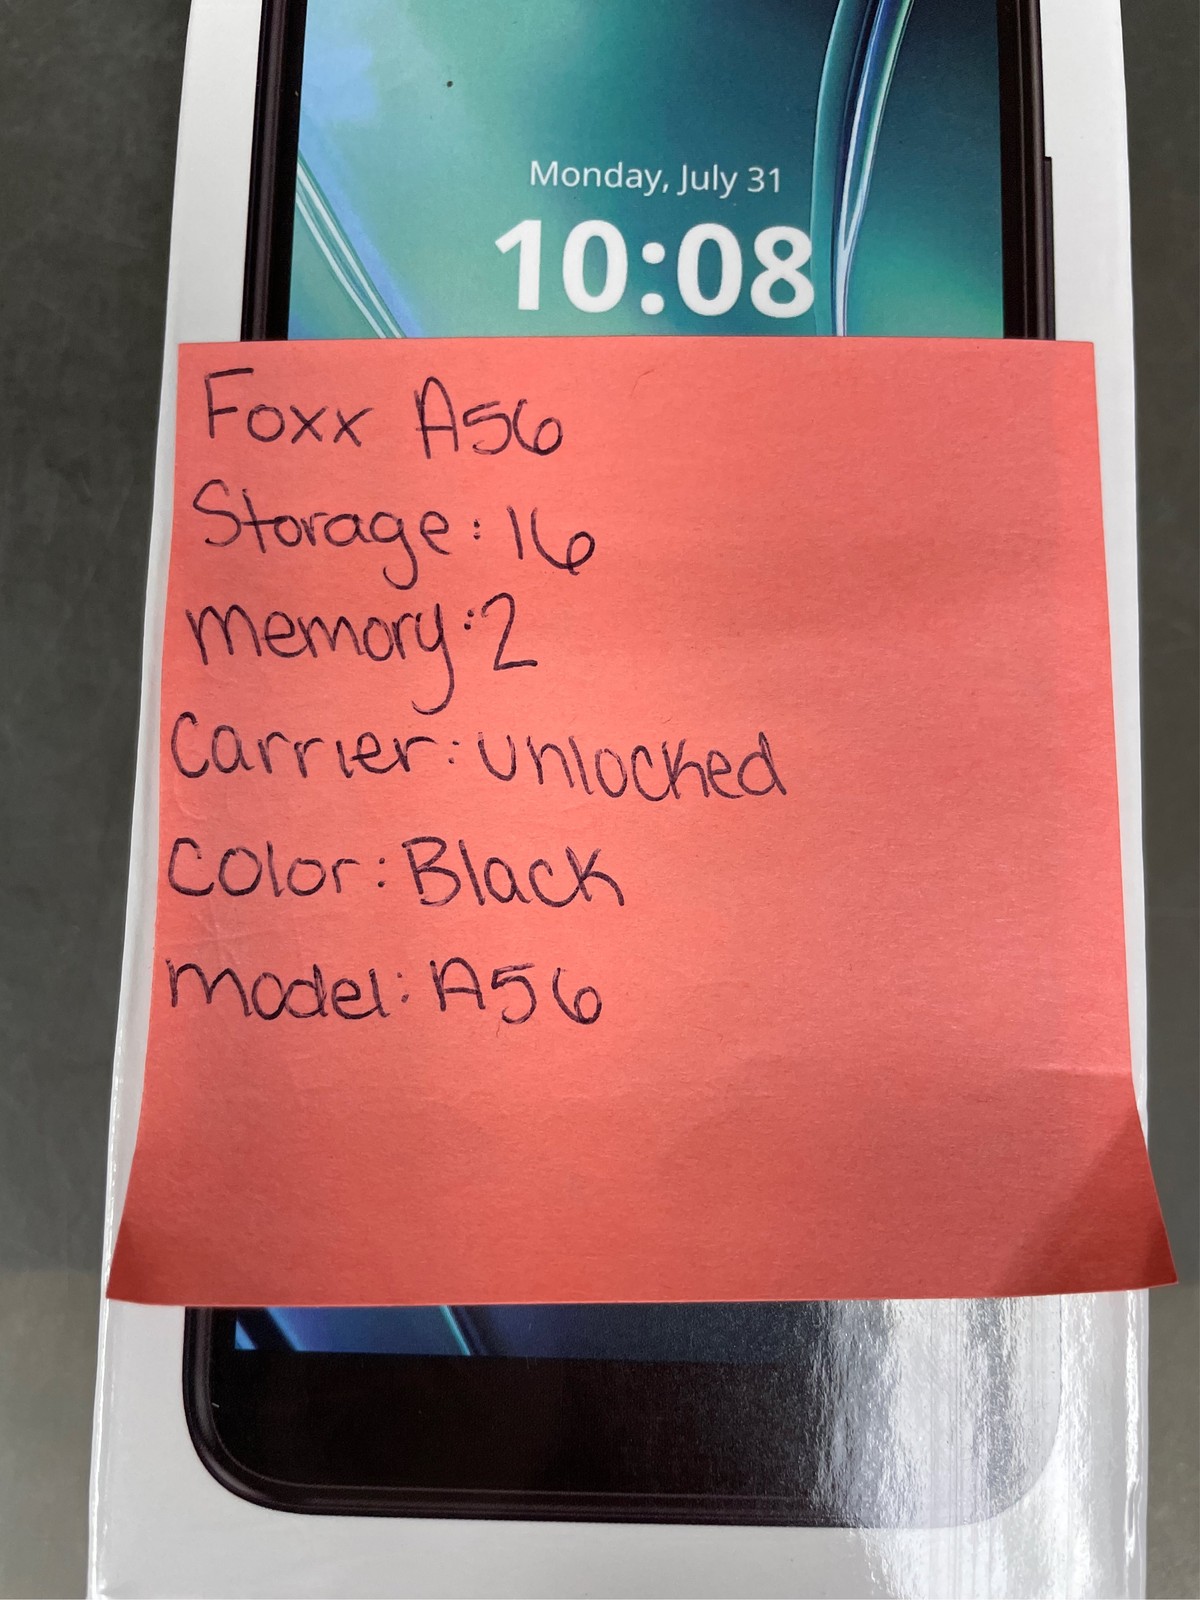 Monday, July 31
10:08
Foxx A56
Storage: 16
memory: 2
Carrier: unlocked
Color: Black
model: A56